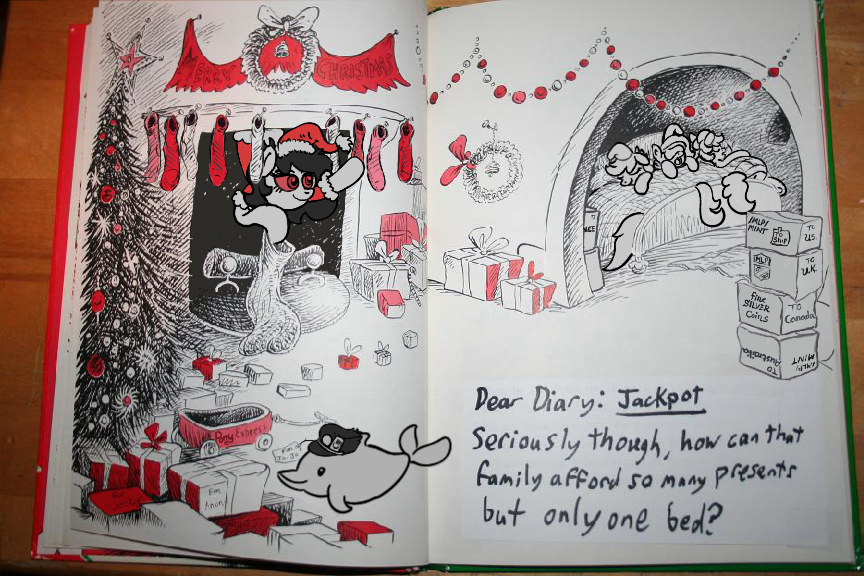 MERRY CHRISTMAS
Pony Express!
For
Anon
/MLP/
MINT
TO
SHIP
TO
U.S.
MLP
TO
U.K.
fine
SILVER
Coins
TO
Canada
TO
Australia
/MLP/
MINT
Dear Diary: Jackpot
Seriously though, how can that
family afford so many presents
but only one bed?